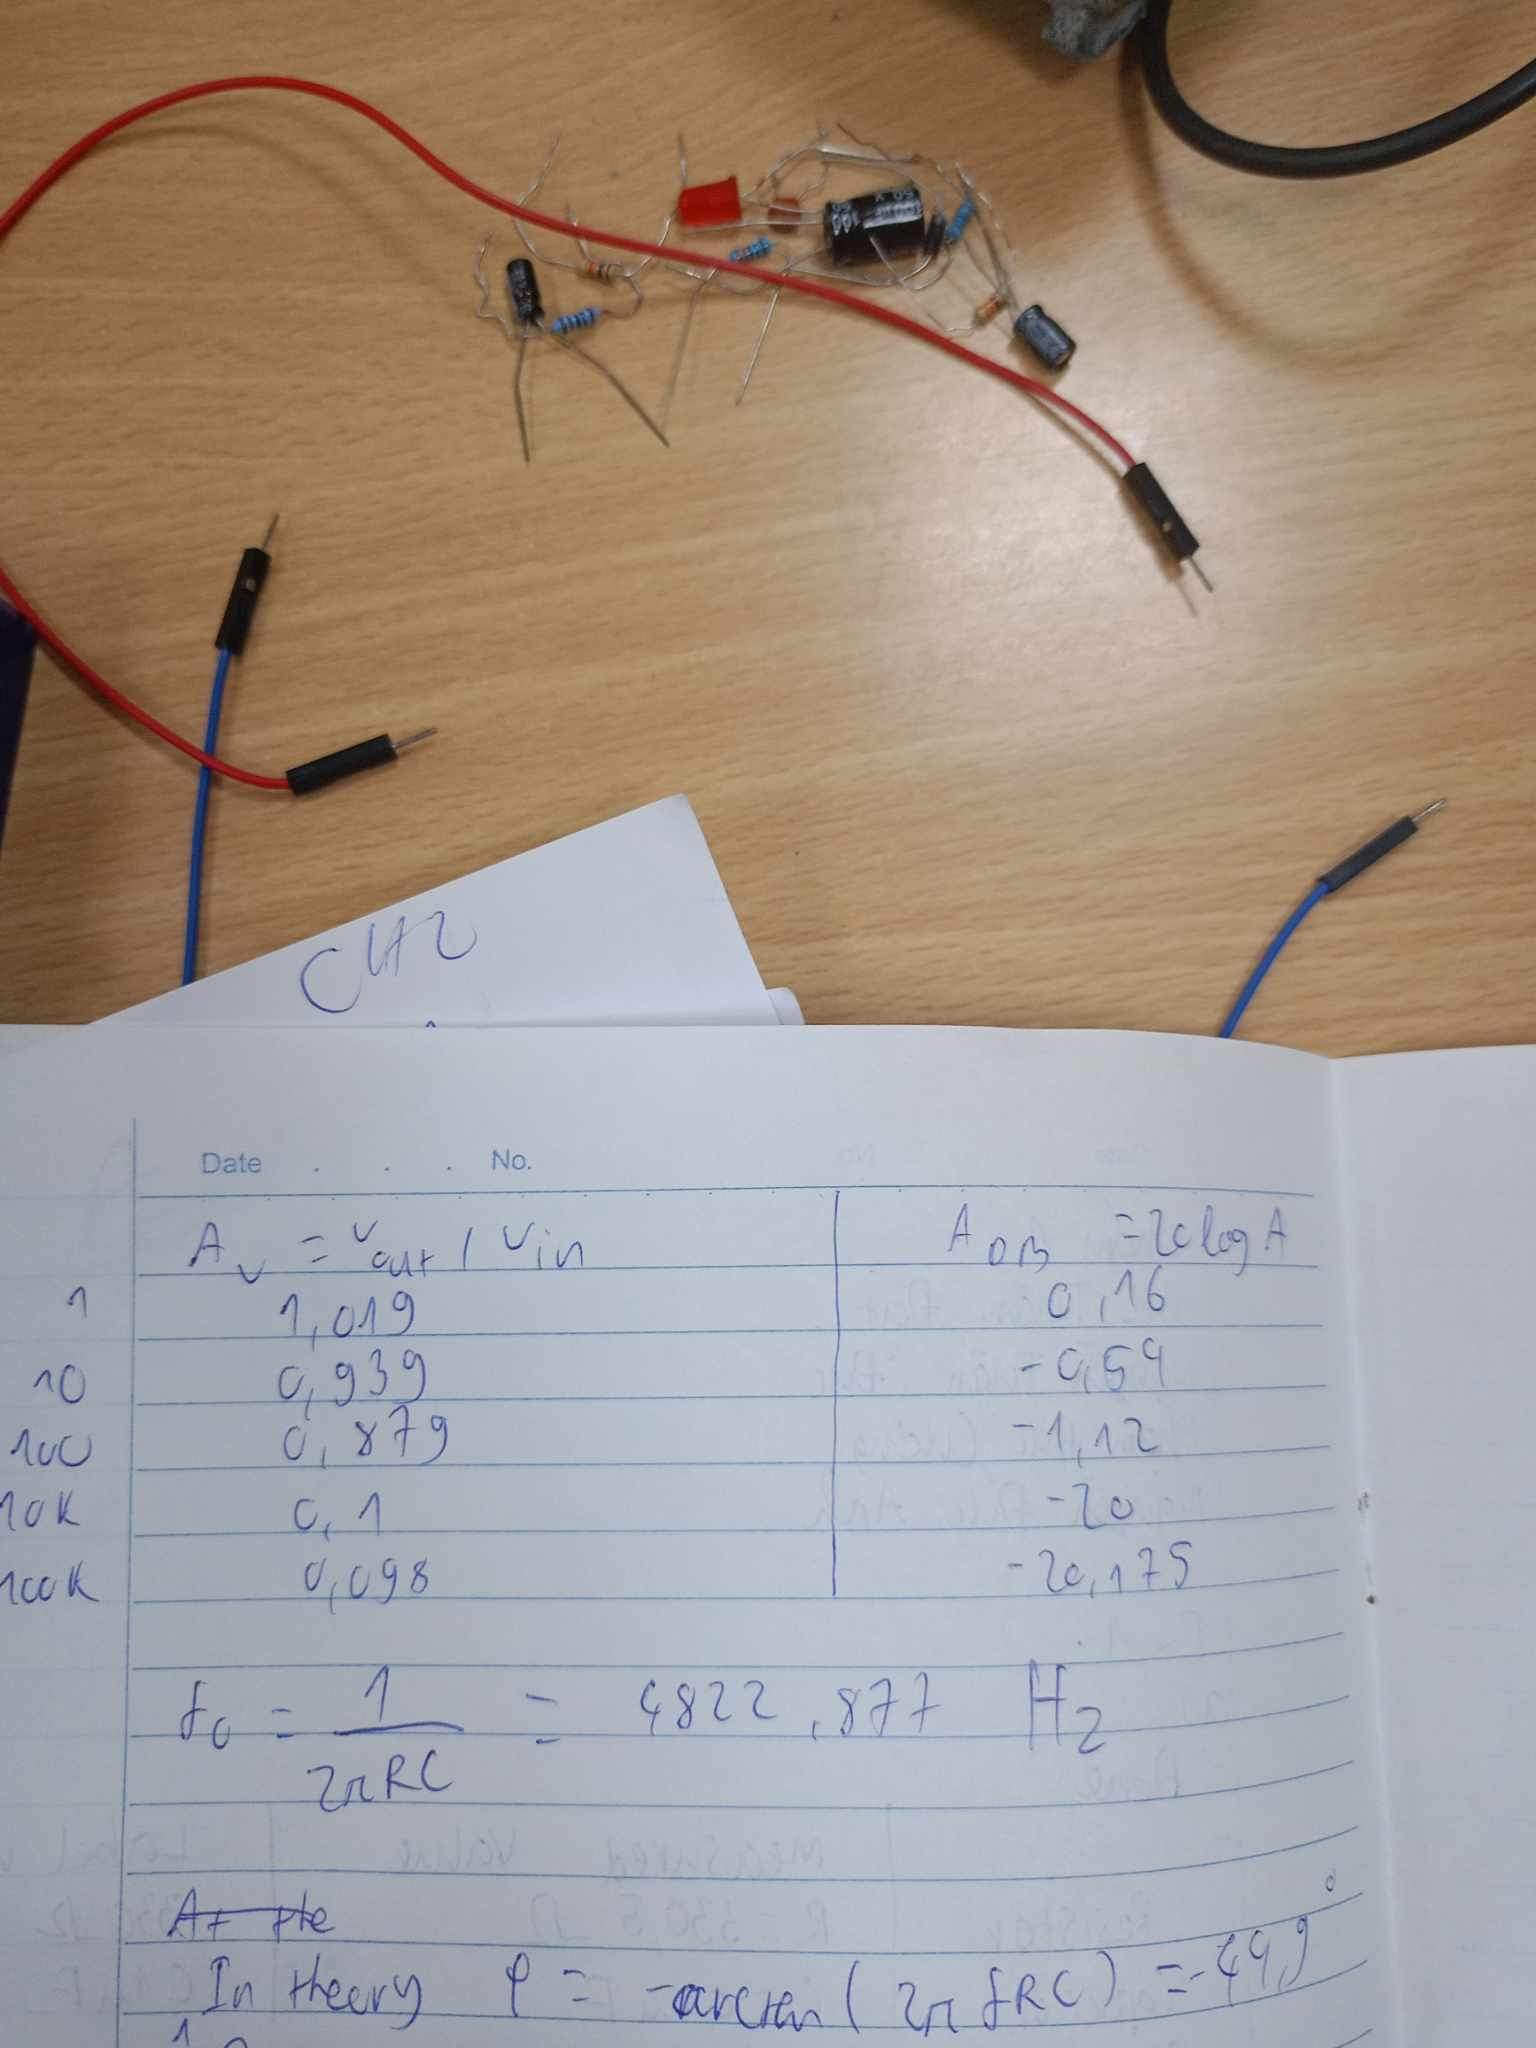 CH2
Date . . . No.
Av = Vout / Vin ADB = 20 log A
1 1,019 0,16
10 0,939 -0,54
100 0,879 -1,12
10K 0,1 -20
100K 0,098 -20,175
f0 = 1 / 2πRC = 4822,877 Hz
At the
In theory φ = -arctan ( 2π fRC ) = -44,9°